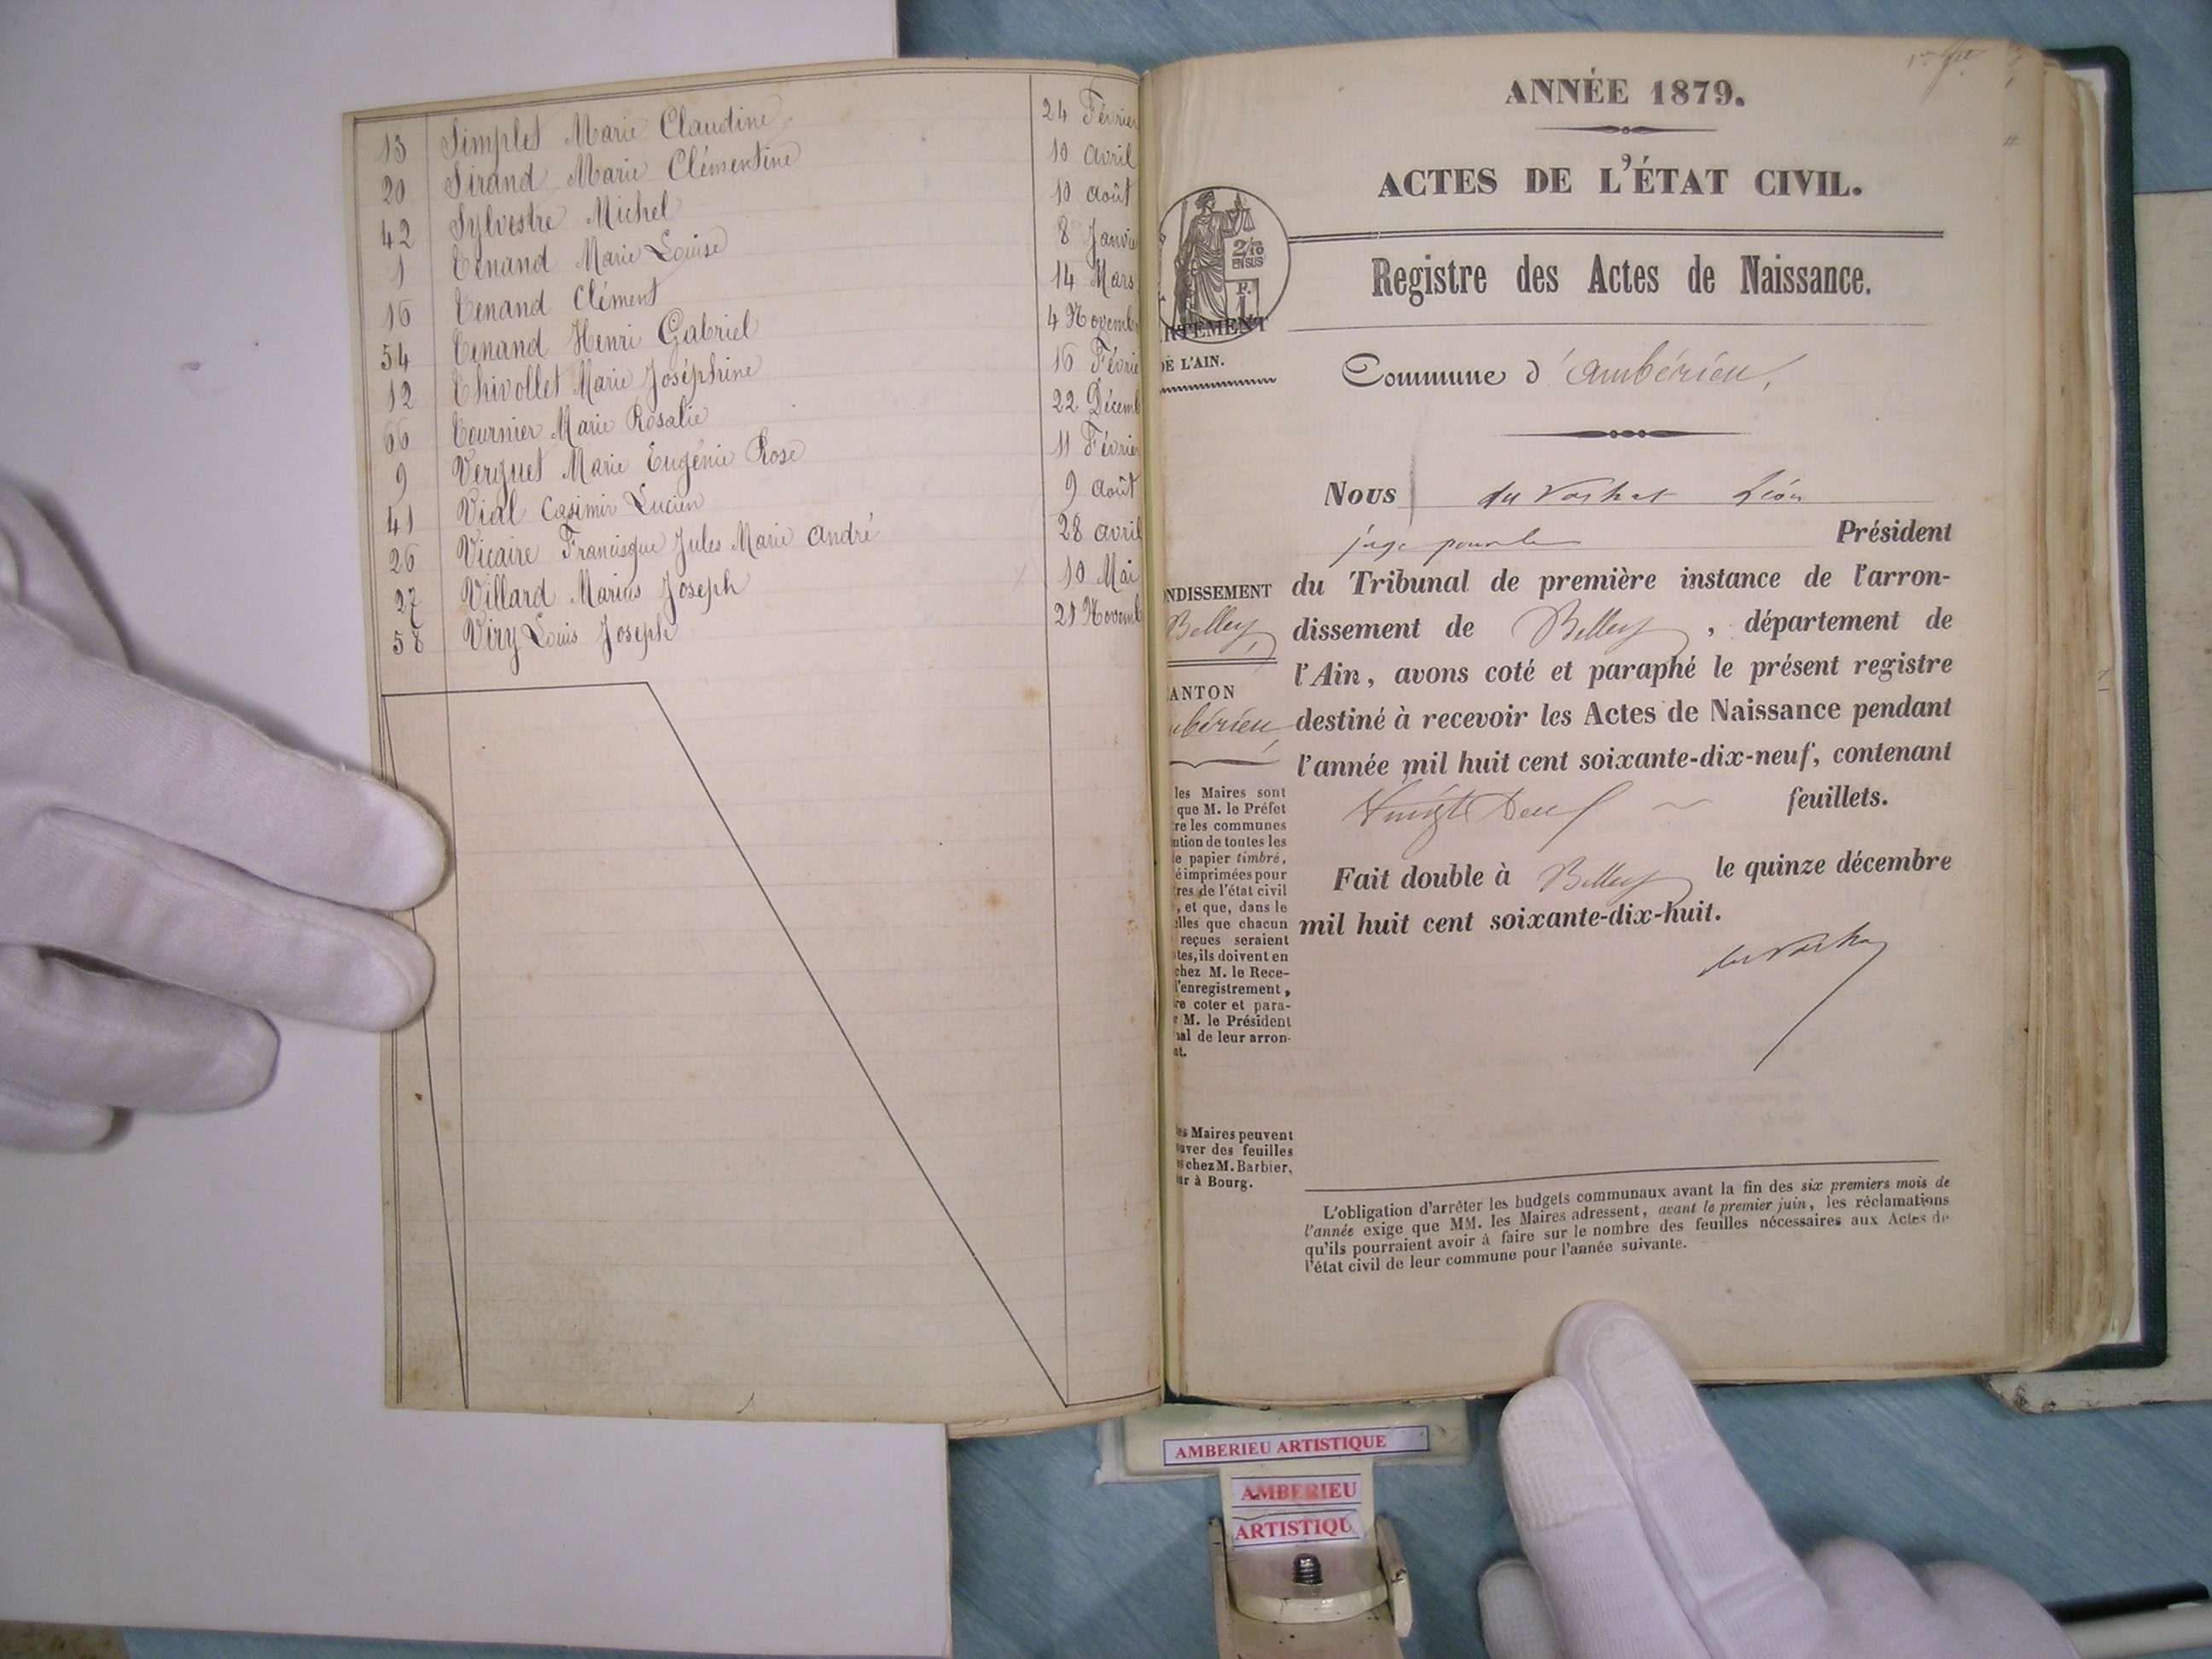 13 Simplet Marie Claudine 24 Février
20 Sirand Marie Clémentine 10 avril
42 Sylvestre Michel 10 août
1 Tenand Marie Louise 8 Janvie
16 Tenand Clément 14 Mars
54 Tenand Henri Gabriel 4 Novemb
12 Thivollet Marie Joséphine 16 Févrie
66 Tournier Marie Rosalie 22 Décemb
9 Verguet Marie Eugénie Rose 11 Février
41 Vial Casimir Lucien 9 août
26 Vicaire Francisque Jules Marie André 28 avril
27 Villard Marius Joseph 10 Mai
58 Viry Louis Joseph 21 Novemb
ANNÉE 1879.
ACTES DE L'ÉTAT CIVIL.
2/10
EN SUS
F.
1
RTEMENT
DE L'AIN.
Registre des Actes de Naissance.
Commune d'Ambérieu,
Nous du Vachat Léon
juge pour le Président
du Tribunal de première instance de l'arron-
dissement de Belley, département de
l'Ain, avons coté et paraphé le présent registre
destiné à recevoir les Actes de Naissance pendant
l'année mil huit cent soixante-dix-neuf, contenant
Vingt Deux feuillets.
Fait double à Belley le quinze décembre
mil huit cent soixante-dix-huit.
du Vachat
NDISSEMENT
Belley,
ANTON
bérieu,
les Maires sont
que M. le Préfet
re les communes
ntion de toutes les
e papier timbré,
é imprimées pour
res de l'état civil
, et que, dans le
elles que chacun
reçues seraient
tes, ils doivent en
chez M. le Rece-
l'enregistrement,
re coter et para-
r M. le Président
nal de leur arron-
nt.
es Maires peuvent
ouver des feuilles
s chez M. Barbier,
ur à Bourg.
L'obligation d'arrêter les budgets communaux avant la fin des six premiers mois de
l'année exige que MM. les Maires adressent, avant le premier juin, les réclamations
qu'ils pourraient avoir à faire sur le nombre des feuilles nécessaires aux Actes de
l'état civil de leur commune pour l'année suivante.
AMBERIEU ARTISTIQUE
AMBERIEU
ARTISTIQU